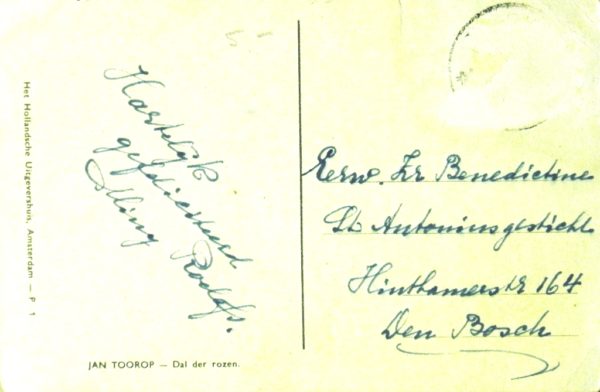 Hartelijk
gefeliciteerd
Het Hollandsche Uitgevershuis, Amsterdam — P 1
JAN TOOROP — Dal der rozen.
Eerw. Zr Benedictine
St. Antoniusgesticht
Hinthamerstr 164
Den Bosch